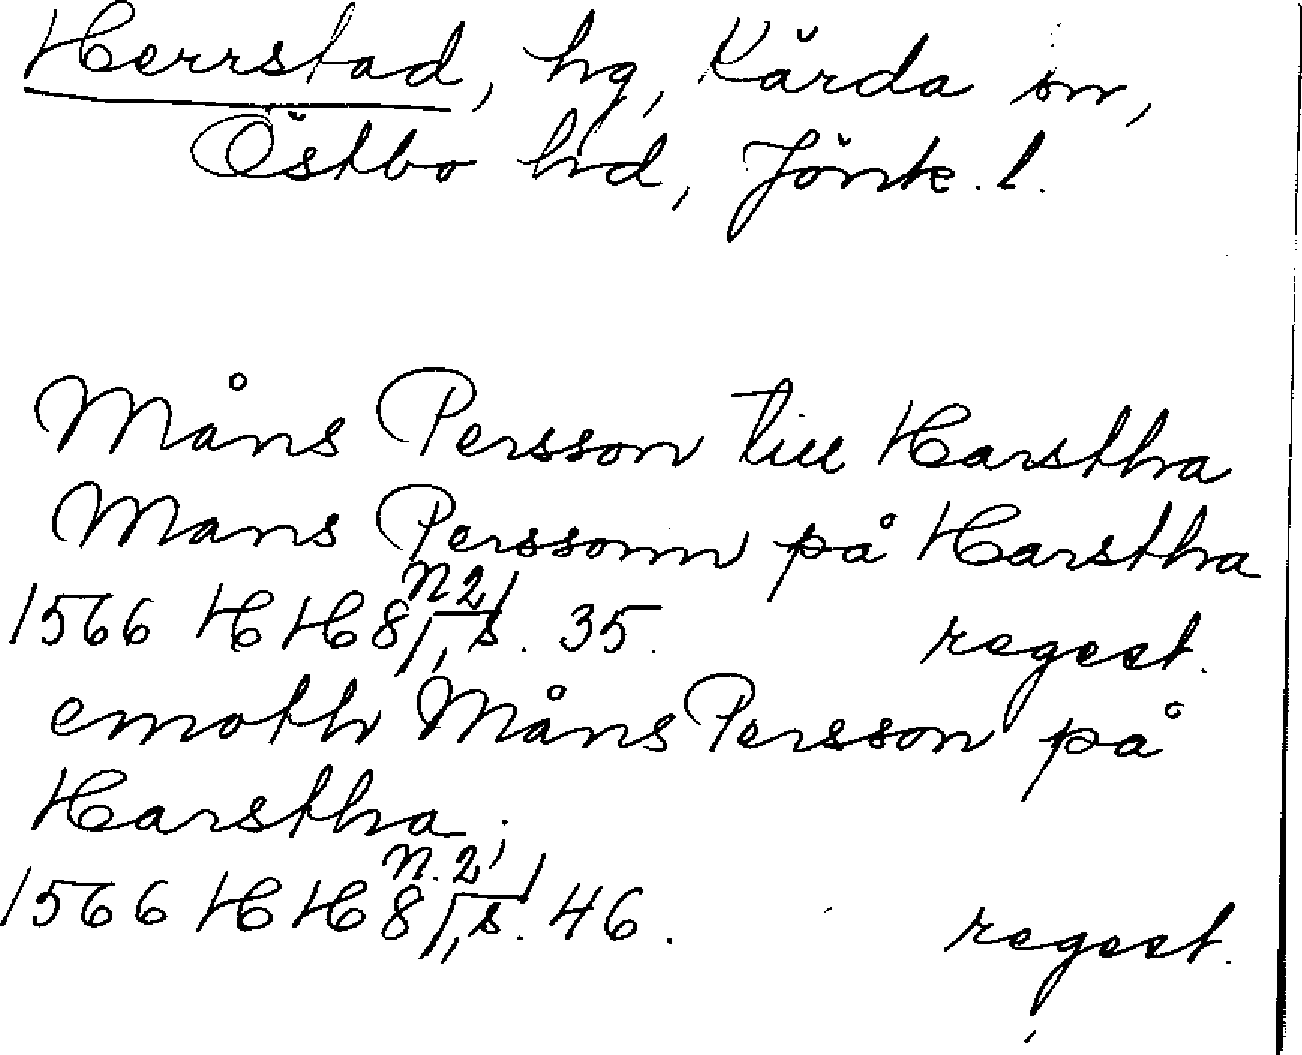 Herrstad, hg, Kärda sn,
Östbo hd, Jönk. l.
Måns Persson till Harstha
Mans Perssonn på Harstha
1566 HH 8, n 2, s. 35. regest.
emoth Måns Persson på
Harstha.
1566 HH 8, n. 2, s. 46. regest.